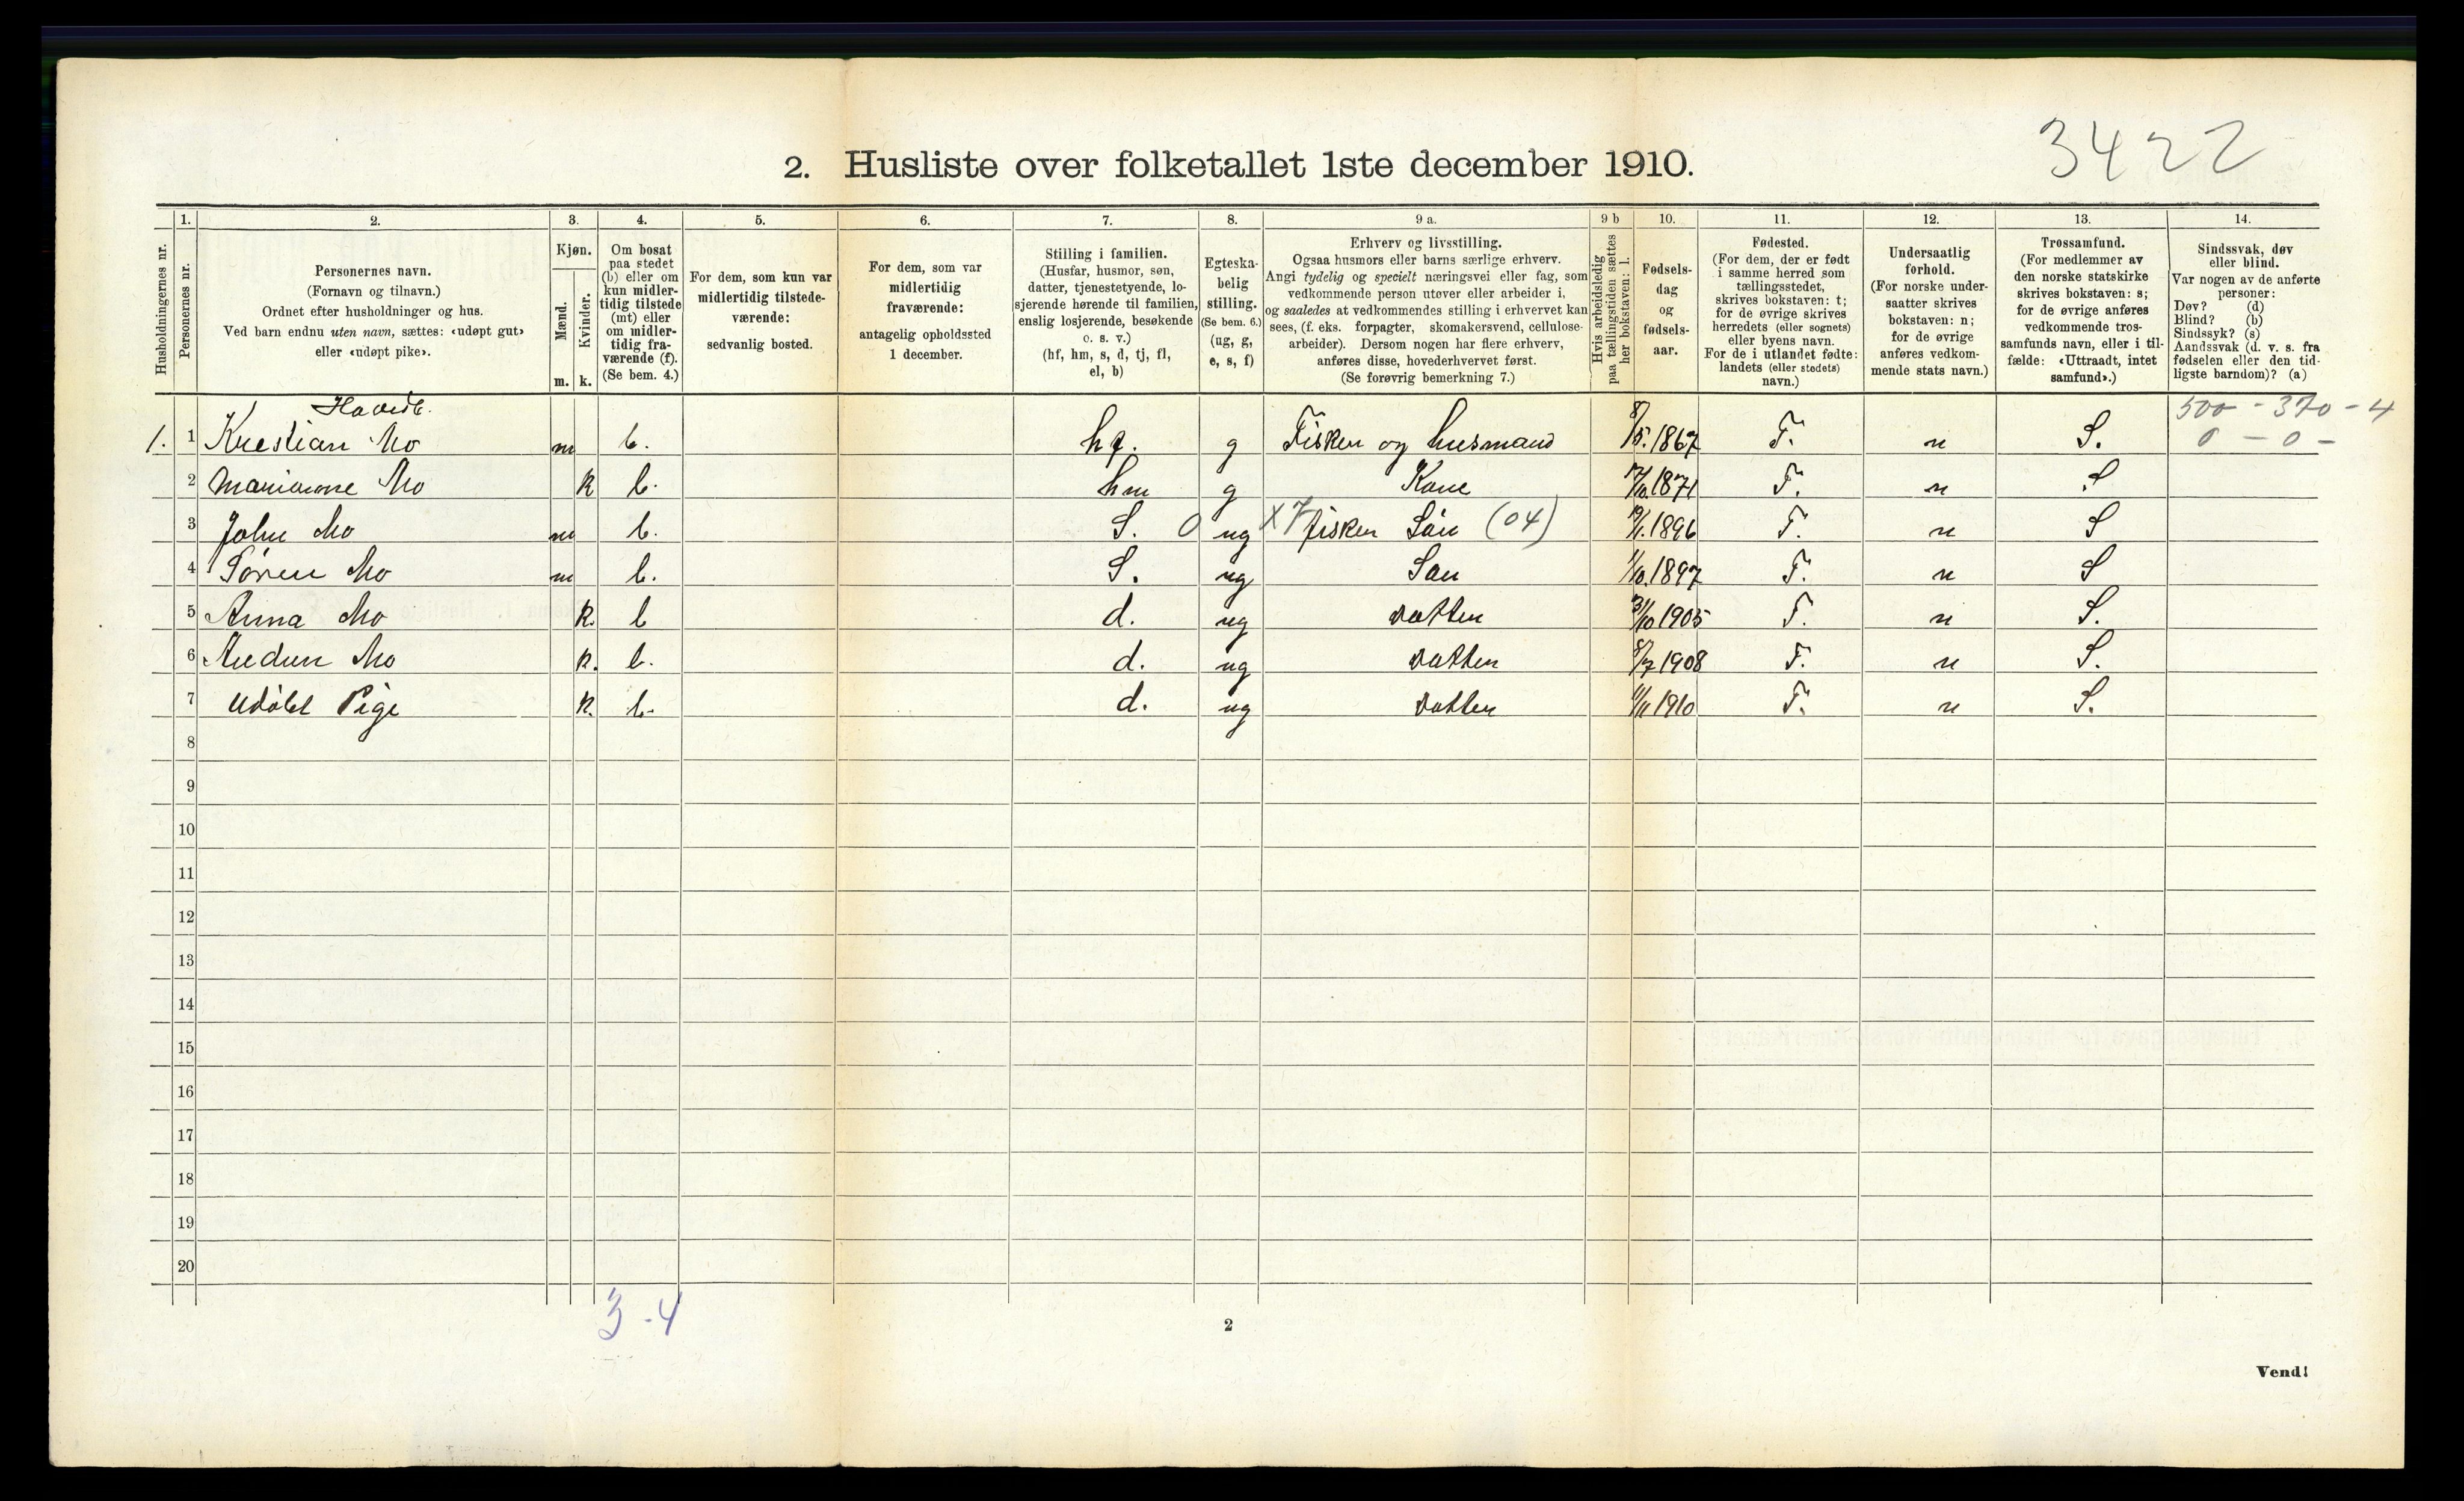 3422
2. Husliste over folketallet 1ste december 1910.
Husholdningernes nr.
1.
Personernes nr.
2.
Personernes navn.
(Fornavn og tilnavn.)
Ordnet efter husholdninger og hus.
Ved barn endnu uten navn, sættes: «udøpt gut»
eller «udøpt pike».
3.
Kjøn.
Mænd.
Kvinder.
m. k.
4.
Om bosat
paa stedet
(b) eller om
kun midler-
tidig tilstede
(mt) eller
om midler-
tidig fra-
værende (f).
(Se bem. 4.)
5.
For dem, som kun var
midlertidig tilstede-
værende:
sedvanlig bosted.
6.
For dem, som var
midlertidig
fraværende:
antagelig opholdssted
1 december.
7.
Stilling i familien.
(Husfar, husmor, søn,
datter, tjenestetyende, lo-
sjerende hørende til familien,
enslig losjerende, besøkende
o. s. v.)
(hf, hm, s, d, tj, fl,
el, b)
8.
Egteska-
belig
stilling.
(Se bem. 6.)
(ug, g,
e, s, f)
9 a.
Erhverv og livsstilling.
Ogsaa husmors eller barns særlige erhverv.
Angi tydelig og specielt næringsvei eller fag, som
vedkommende person utøver eller arbeider i,
og saaledes at vedkommendes stilling i erhvervet kan
sees, (f. eks. forpagter, skomakersvend, cellulose-
arbeider). Dersom nogen har flere erhverv,
anføres disse, hovederhvervet først.
(Se forøvrig bemerkning 7.)
9 b
Hvis arbeidsledig
paa tællingstiden sættes
her bokstaven: l.
10.
Fødsels-
dag
og
fødsels-
aar.
11.
Fødested.
(For dem, der er født
i samme herred som
tællingsstedet,
skrives bokstaven: t;
for de øvrige skrives
herredets (eller sognets)
eller byens navn.
For de i utlandet fødte:
landets (eller stedets)
navn.)
12.
Undersaatlig
forhold.
(For norske under-
saatter skrives
bokstaven: n;
for de øvrige
anføres vedkom-
mende stats navn.)
13.
Trossamfund.
(For medlemmer av
den norske statskirke
skrives bokstaven: s;
for de øvrige anføres
vedkommende tros-
samfunds navn, eller i til-
fælde: «Uttraadt, intet
samfund».)
14.
Sindssvak, døv
eller blind.
Var nogen av de anførte
personer:
Døv? (d)
Blind? (b)
Sindssyk? (s)
Aandssvak (d. v. s. fra
fødselen eller den tid-
ligste barndom)? (a)
500 - 370 - 4
1. 1 Kristian Mo m b. hf. g Fisker og husmand 8/5.1867 T. n S. 0 - 0 -
2 Marianne Mo k b. hm g Kone 1871 T. n S
3 John Mo m b. S. 0 ug X 7 fisker Søn (04) 19/1.1896 T. n S
4 Søren Mo m b. S. ug Søn 1/10.1897 T. n S
5 Anna Mo k. b d. ug datter 31/10 1905 T. n S.
6 Mo k. b. d. ug datter 8/7 1908 T. n S.
7 Udøbt Pige k. b. d. ug datter 11/11 1910 T. n S.
8
9
10
11
12
13
14
15
16
17
18
19
20
3-4
2
Vend!